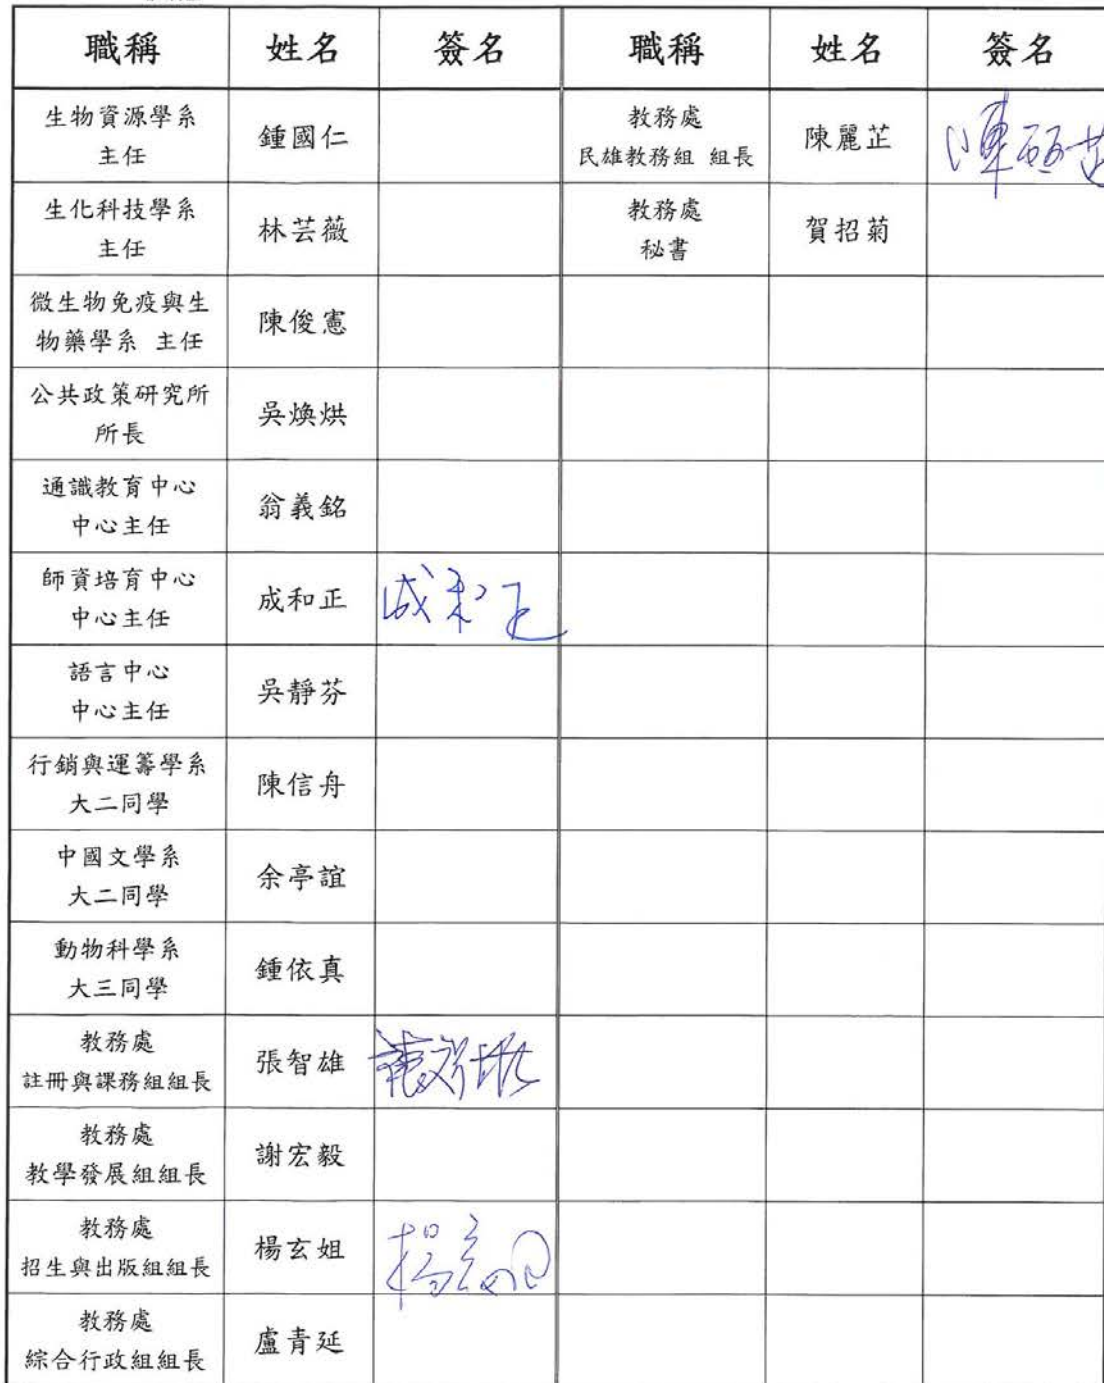 職稱 姓名 簽名 職稱 姓名 簽名
生物資源學系
主任
鍾國仁
教務處
民雄教務組 組長
陳麗芷
陳麗芷
生化科技學系
主任
林芸薇
教務處
秘書
賀招菊
微生物免疫與生
物藥學系 主任
陳俊憲
公共政策研究所
所長
吳煥烘
通識教育中心
中心主任
翁義銘
師資培育中心
中心主任
成和正
成和正
語言中心
中心主任
吳靜芬
行銷與運籌學系
大二同學
陳信舟
中國文學系
大二同學
余亭誼
動物科學系
大三同學
鍾依真
教務處
註冊與課務組組長
張智雄
張智雄
教務處
教學發展組組長
謝宏毅
教務處
招生與出版組組長
楊玄姐
楊玄姐
教務處
綜合行政組組長
盧青延